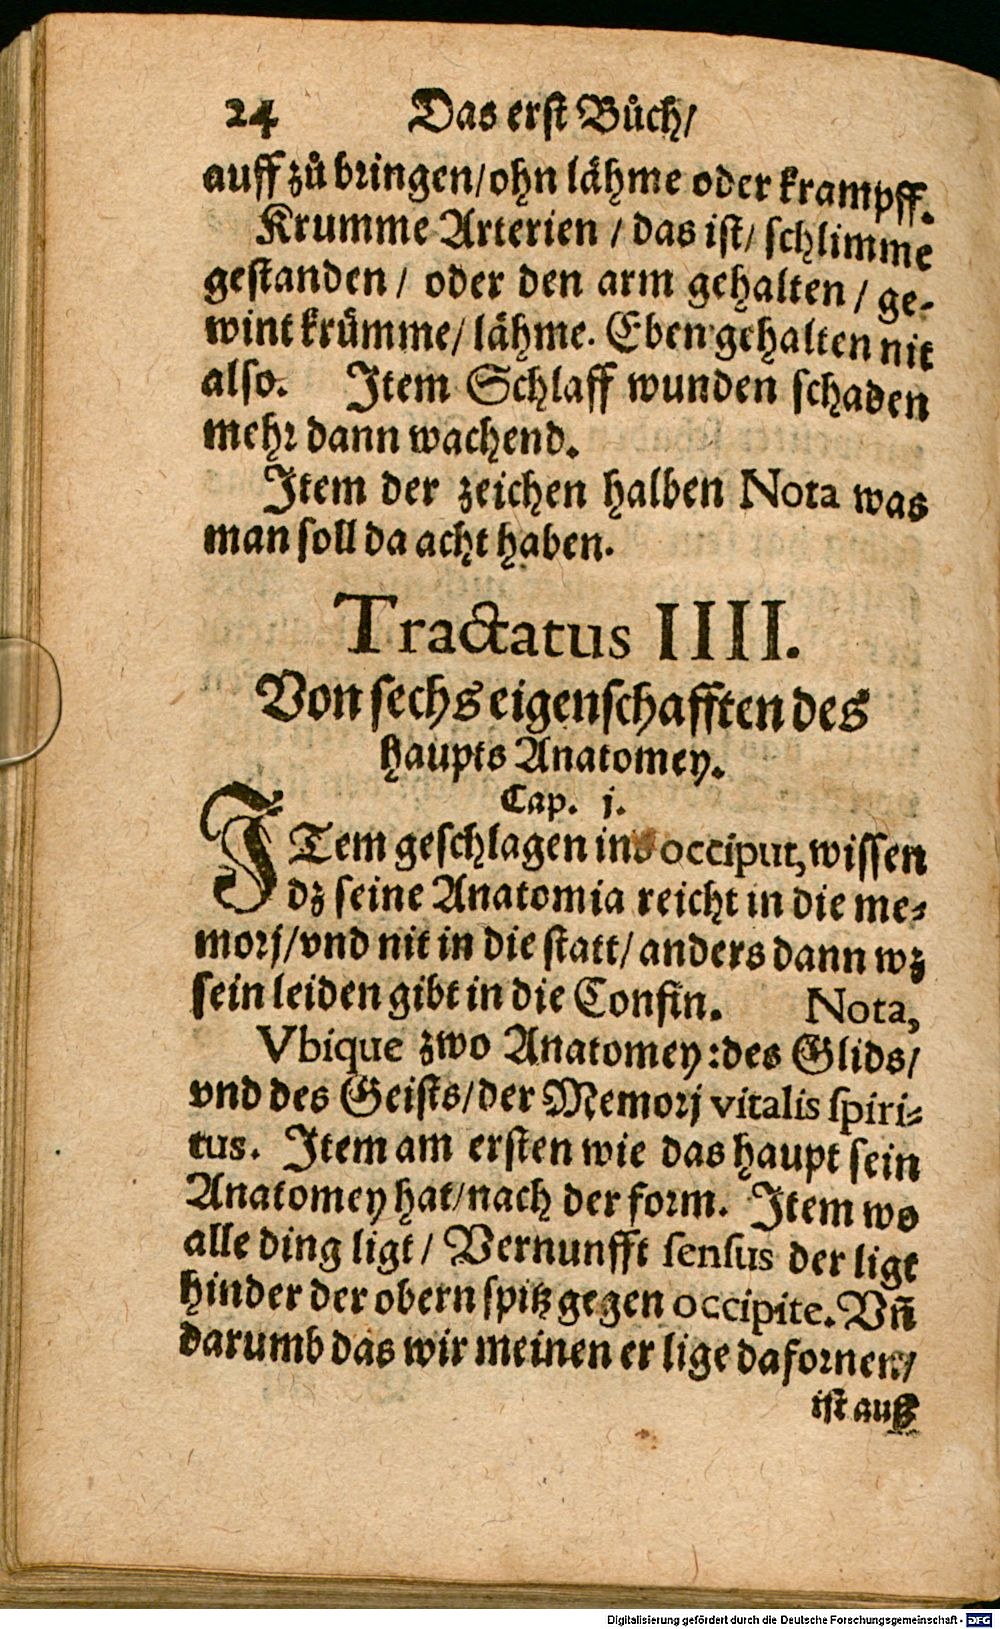 24 Das erst Bůch/
auff zů bringen/ohn lähme oder krampff.
Krumme Arterien / das ist/ schlimme
gestanden / oder den arm gehalten / ge-
wint krümme/ lähme. Eben gehalten nit
also. Item Schlaff wunden schaden
mehr dann wachend.
Item der zeichen halben Nota was
man soll da acht haben.
Tractatus IIII.
Von sechs eigenschafften des
haupts Anatomey.
Cap. j.
ITem geschlagen ins occiput, wissen
dz seine Anatomia reicht in die me-
morj/vnd nit in die statt/ anders dann wz
sein leiden gibt in die Confin. Nota,
Vbique zwo Anatomey: des Glids/
vnd des Geists/der Memorj vitalis spiri-
tus. Item am ersten wie das haupt sein
Anatomey hat/nach der form. Item wo
alle ding ligt / Vernunfft sensus der ligt
hinder der obern spitz gegen occipite. Vñ
darumb das wir meinen er lige dafornen/
ist auß
Digitalisierung gefördert durch die Deutsche Forschungsgemeinschaft - DFG